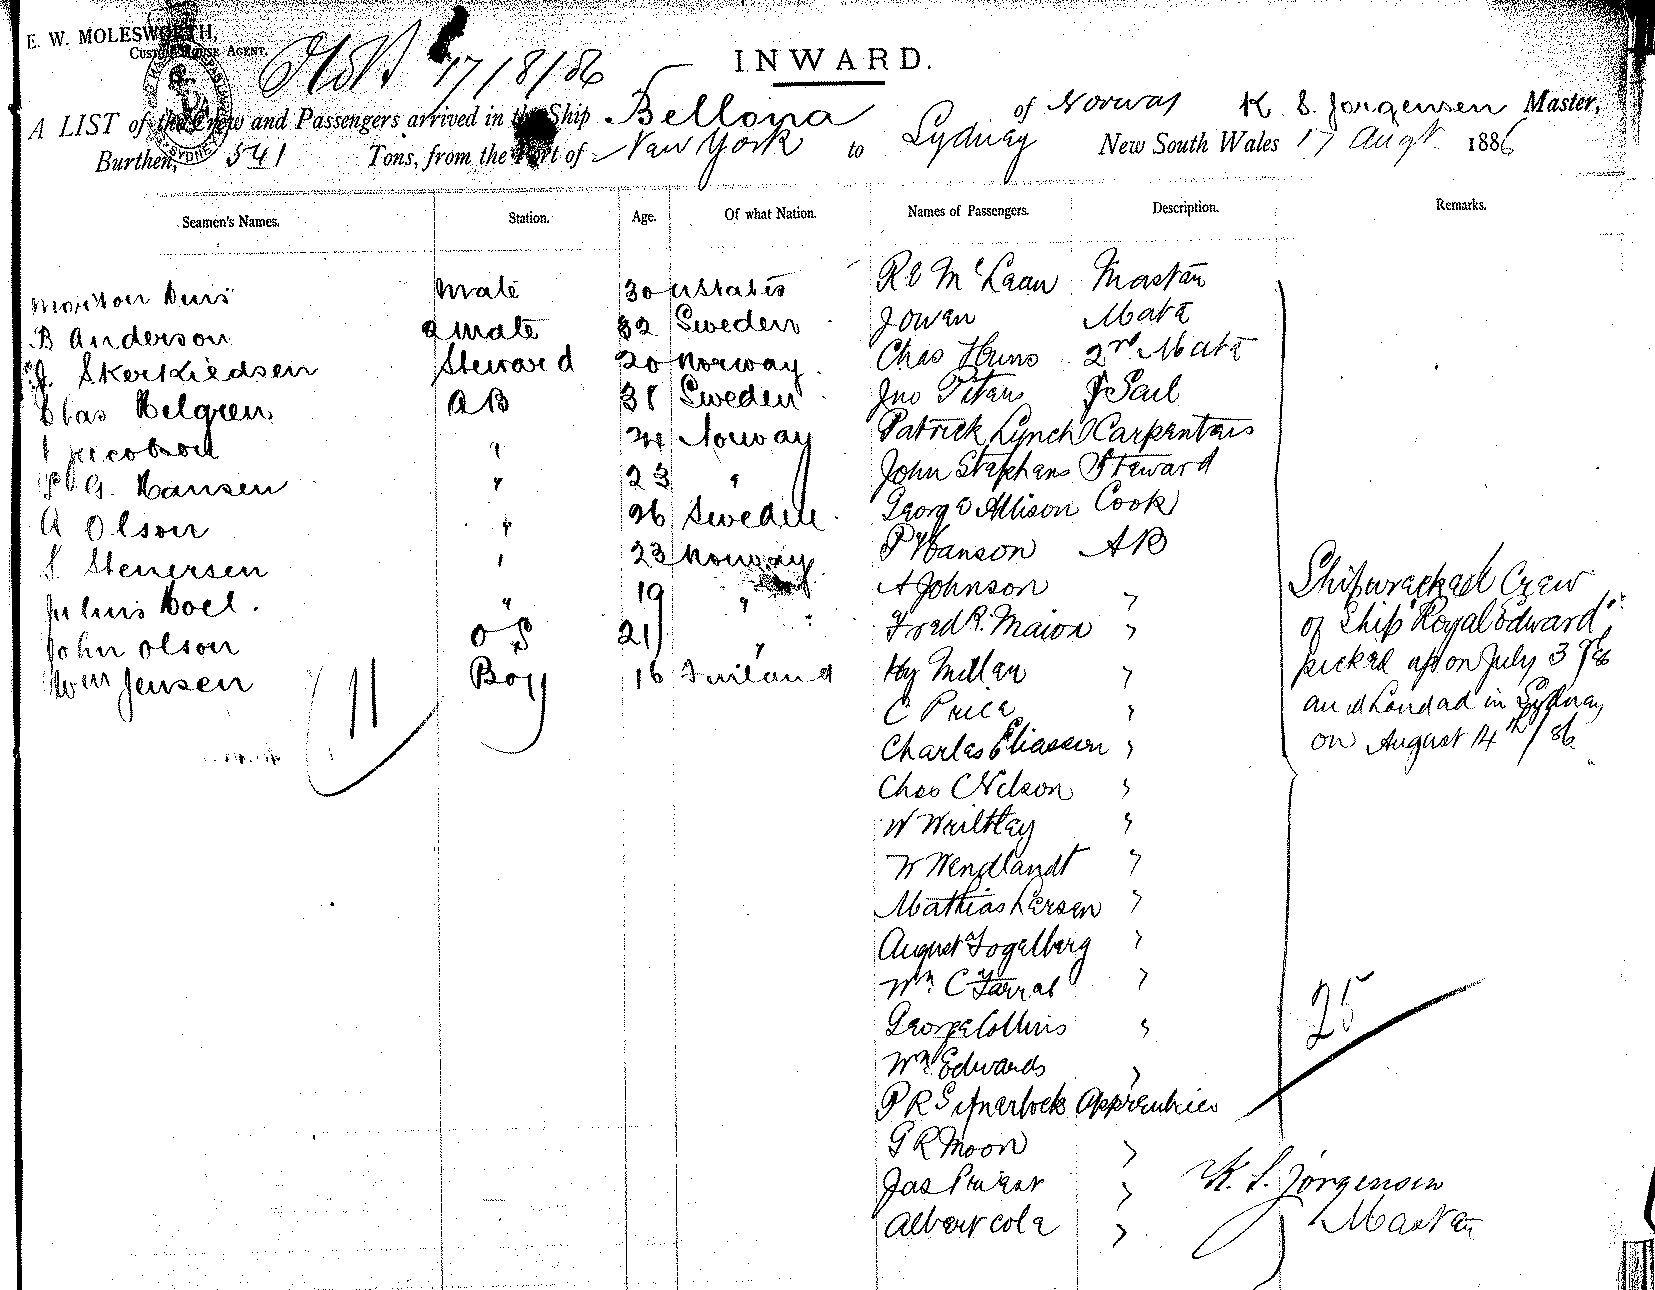 E. W. MOLESWORTH,
Custom House Agent.
17/8/86
INWARD.
A LIST of the Crew and Passengers arrived in the Ship Bellona of Norway K S Jorgensen Master,
Burthen, 541 Tons, from the Port of New York to Sydney New South Wales 17 Augt 1886
Seamen's Names. Station. Age. Of what Nation. Names of Passengers. Description. Remarks.
mate 30 UStates R McLean Master
B Anderson 2 mate 32 Sweden J Owen Mate
J. Steward 20 Norway Chas 2nd Mate
Chas Helgren AB 31 Sweden Jno Peters Sail
Jacobson " 24 Norway Patrick Lynch Carpenter
G. Hansen " 23 " John Stephens Steward
A Olson " 26 Sweden George Allison Cook
S Stenersen " 23 Norway P Hanson AB
Julius Hoel. " 19 " A Johnson "
John Olson OS 21 " Fred R. Maion "
Wm Jensen Boy 16 Finland Hy Miller "
11
C Price "
Charles Eliassen "
Chas C Nelson "
W "
W Wendlandt "
Mathias Larsen "
August Fogelberg "
Wm C Farral "
George Collins "
Wm Edwards "
P R Apprentice
G R Moon "
Jas "
Albert Cole "
Shipwrecked Crew
of Ship "Royal Edward"
picked up on July 3rd /86
and Landed in Sydney
on August 14th /86
25
K. S. Jorgensen
Master